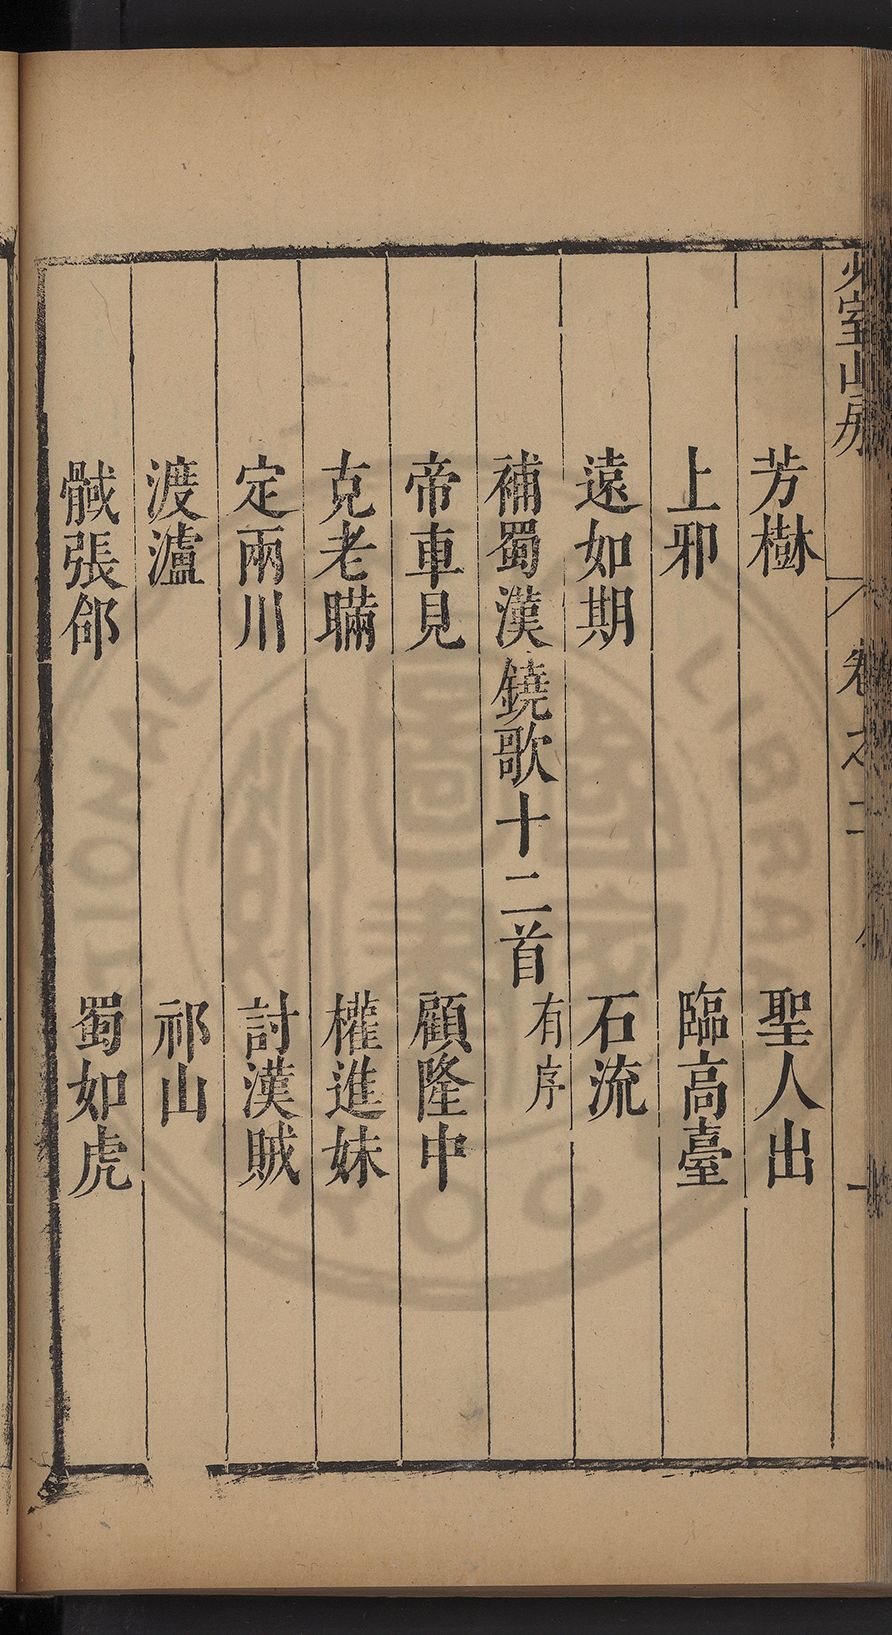 少室山房
卷之二
芳樹 聖人出
上邪 臨高臺
遠如期 石流
補蜀漢鐃歌十二首 有序
帝車見 顧隆中
克老瞞 權進妹
定兩川 討漢賊
渡瀘 祁山
馘張郃 蜀如虎